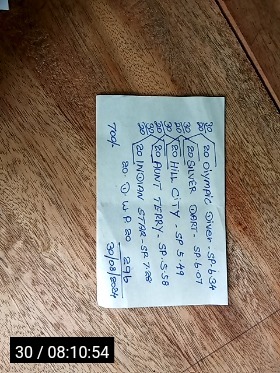 20 Olympic Diver - SP. 6.34
20 SILVER DART - SP. 6.07
20 HILL CITY - SP. 5.49
20 AUNT TERRY - SP. 5.58
20 INDIAN STAR - SP. 7.28
20 W P. 20
296
700/-
30/08/2024
30 / 08:10:54